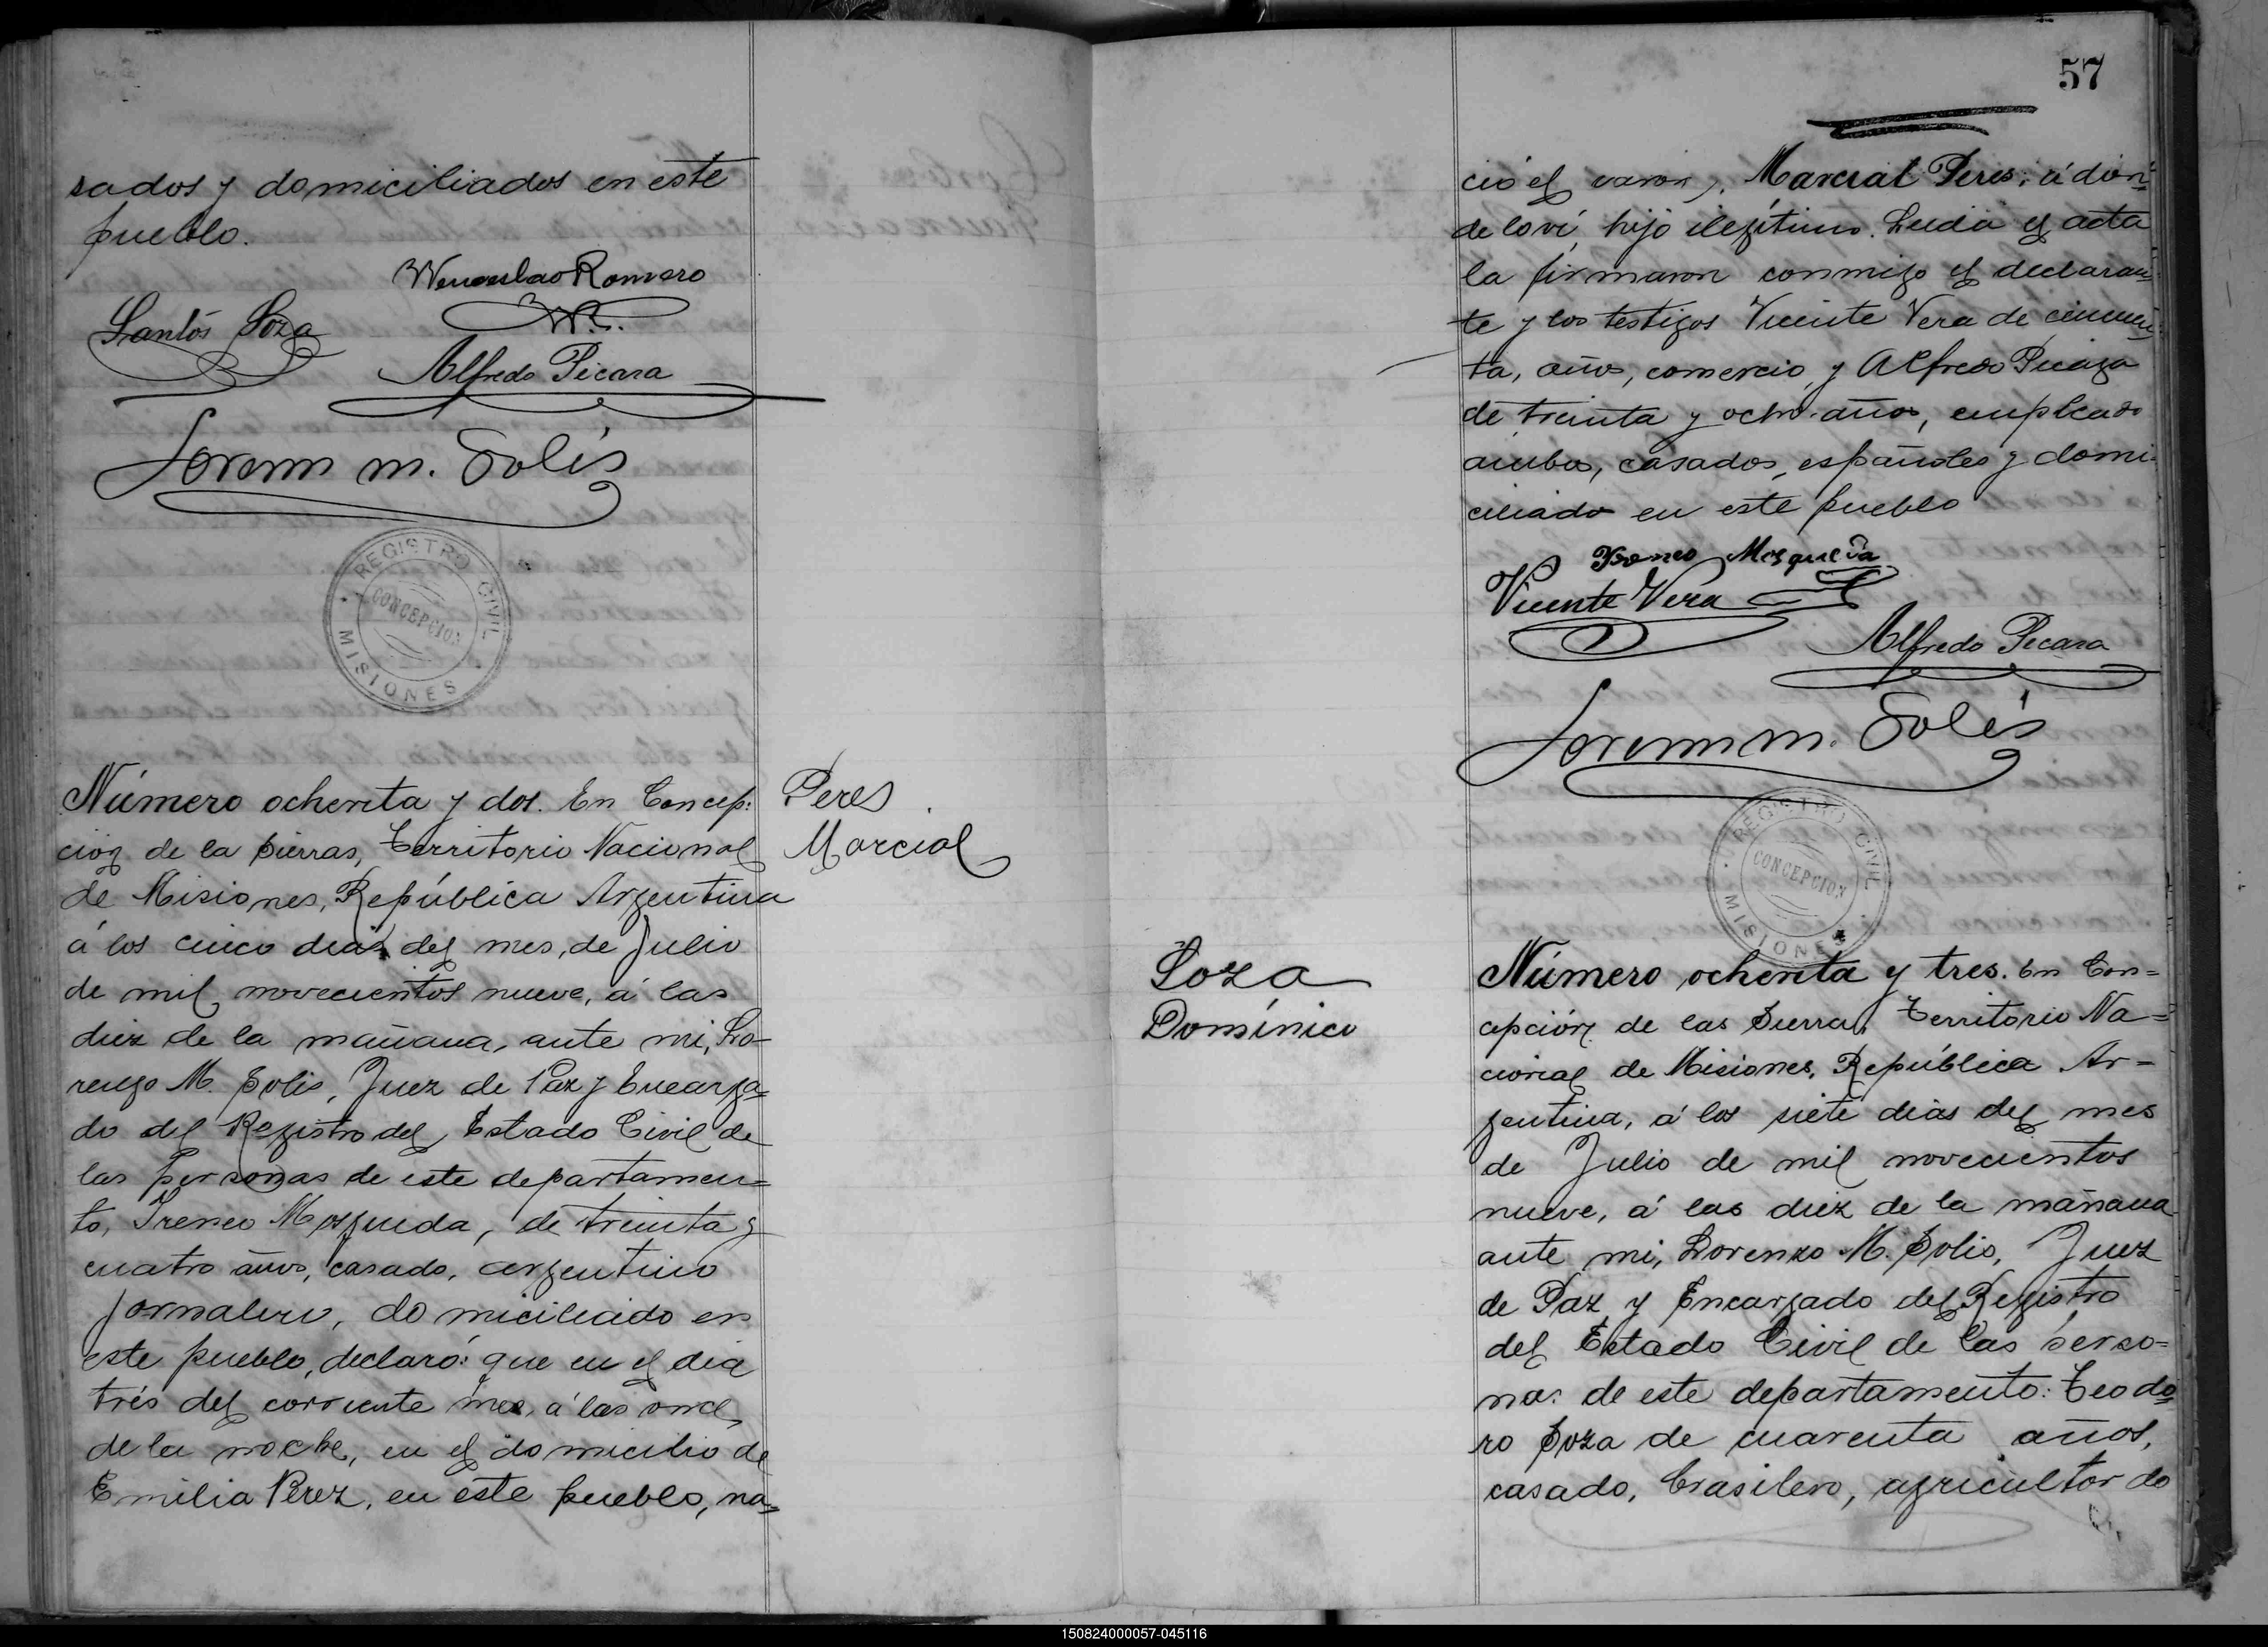 sados y domiciliados en este
pueblo.
Wenceslao Romero
W.R.
Santos Soza
Alfredo Picaza
Lorenzo M. Solis
REGISTRO CIVIL
CONCEPCION
MISIONES
Número ochenta y dos. En Concep:
ción de la Sierras, Territorio Nacional
de Misiones, República Argentina
á los cinco dias del mes, de Julio
de mil novecientos nueve, á las
diez de la mañana, ante mi, Lo-
renzo M. Solis, Juez de Paz y Encarga=
do del Registro del Estado Civil de
las personas de este departamen=
to, Ireneo Mosqueda, de treinta y
cuatro años, casado, argentino
jornalero, domiciliado en
este pueblo, declaró: que en el dia
trés del corriente mes, á las once
de la noche, en el domicilio de
Emilia Perez, en este pueblo, na=
Peres
Marcial
57
ció el varon, Marcial Peres; á don=
de lo ví, hijo ilegítimo. Leida el acta
la firmaron conmigo el declaran=
te y los testigos Vicente Vera de cincuen=
ta, años, comercio, y Alfredo Picaza
de treinta y ocho años, empleado
ambos, casados, españoles y domi-
ciliado en este pueblo
Ireneo Mosqueda
Vicente Vera
Alfredo Picaza
Lorenzo M. Solis
REGISTRO CIVIL
CONCEPCION
MISIONES
Soza
Domínico
Número ochenta y tres. En Con=
cepción de las Sierra, Territorio Na=
cional de Misiones, República Ar=
gentina, á los siete dias del mes
de Julio de mil novecientos
nueve, á las diez de la mañana
ante mi, Lorenzo M. Solis, Juez
de Paz y Encargado del Registro
del Estado Civil de las perso=
nas de este departamento: Teodo=
ro Soza de cuarenta años,
casado, brasilero, agricultor do
150824000057-045116